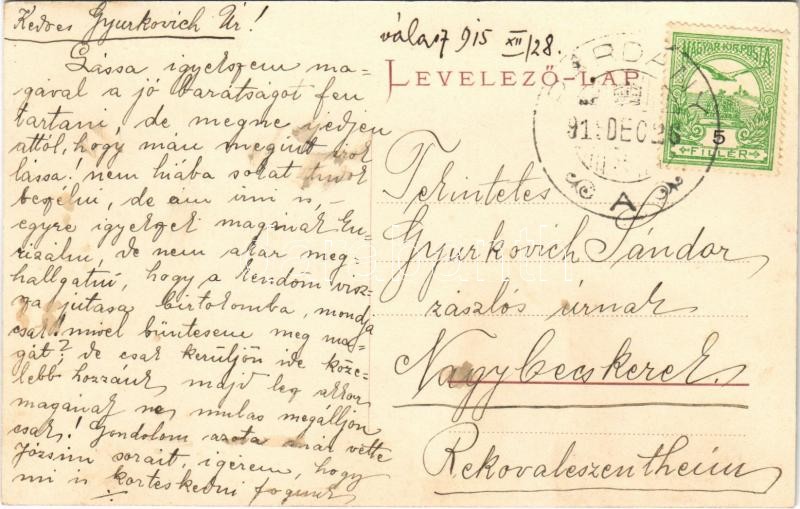 Kedves Gyurkovich Úr!
Lássa igyekszem ma-
gával a jó barátságot fen
tartani, de megne ijedjen
attól, hogy már megint irok
lássa! nem hiába sokat
beszélni, de ám irni is, –
egyre igyekszek magának
de nem akar meg-
hallgatni, hogy a kendőm visz-
sza jutása birtokomba, mondja
csak! mivel büntesem meg ma-
gát? de csak kerüljön ide köze-
lebb hozzánk majd leg akkor
magának ne mulas megálljon
csak! Gondolom azóta már vette
Józsim sorait, igérem, hogy
mi is korteskedni fogunk
válasz 915 XII/28.
LEVELEZŐ-LAP
915 DEC 26
A
MAGYAR KIR. POSTA
5
FILLÉR
Tekintetes
Gyurkovich Sándor
zászlós úrnak
Nagybecskerek.
Rekovaleszentheim